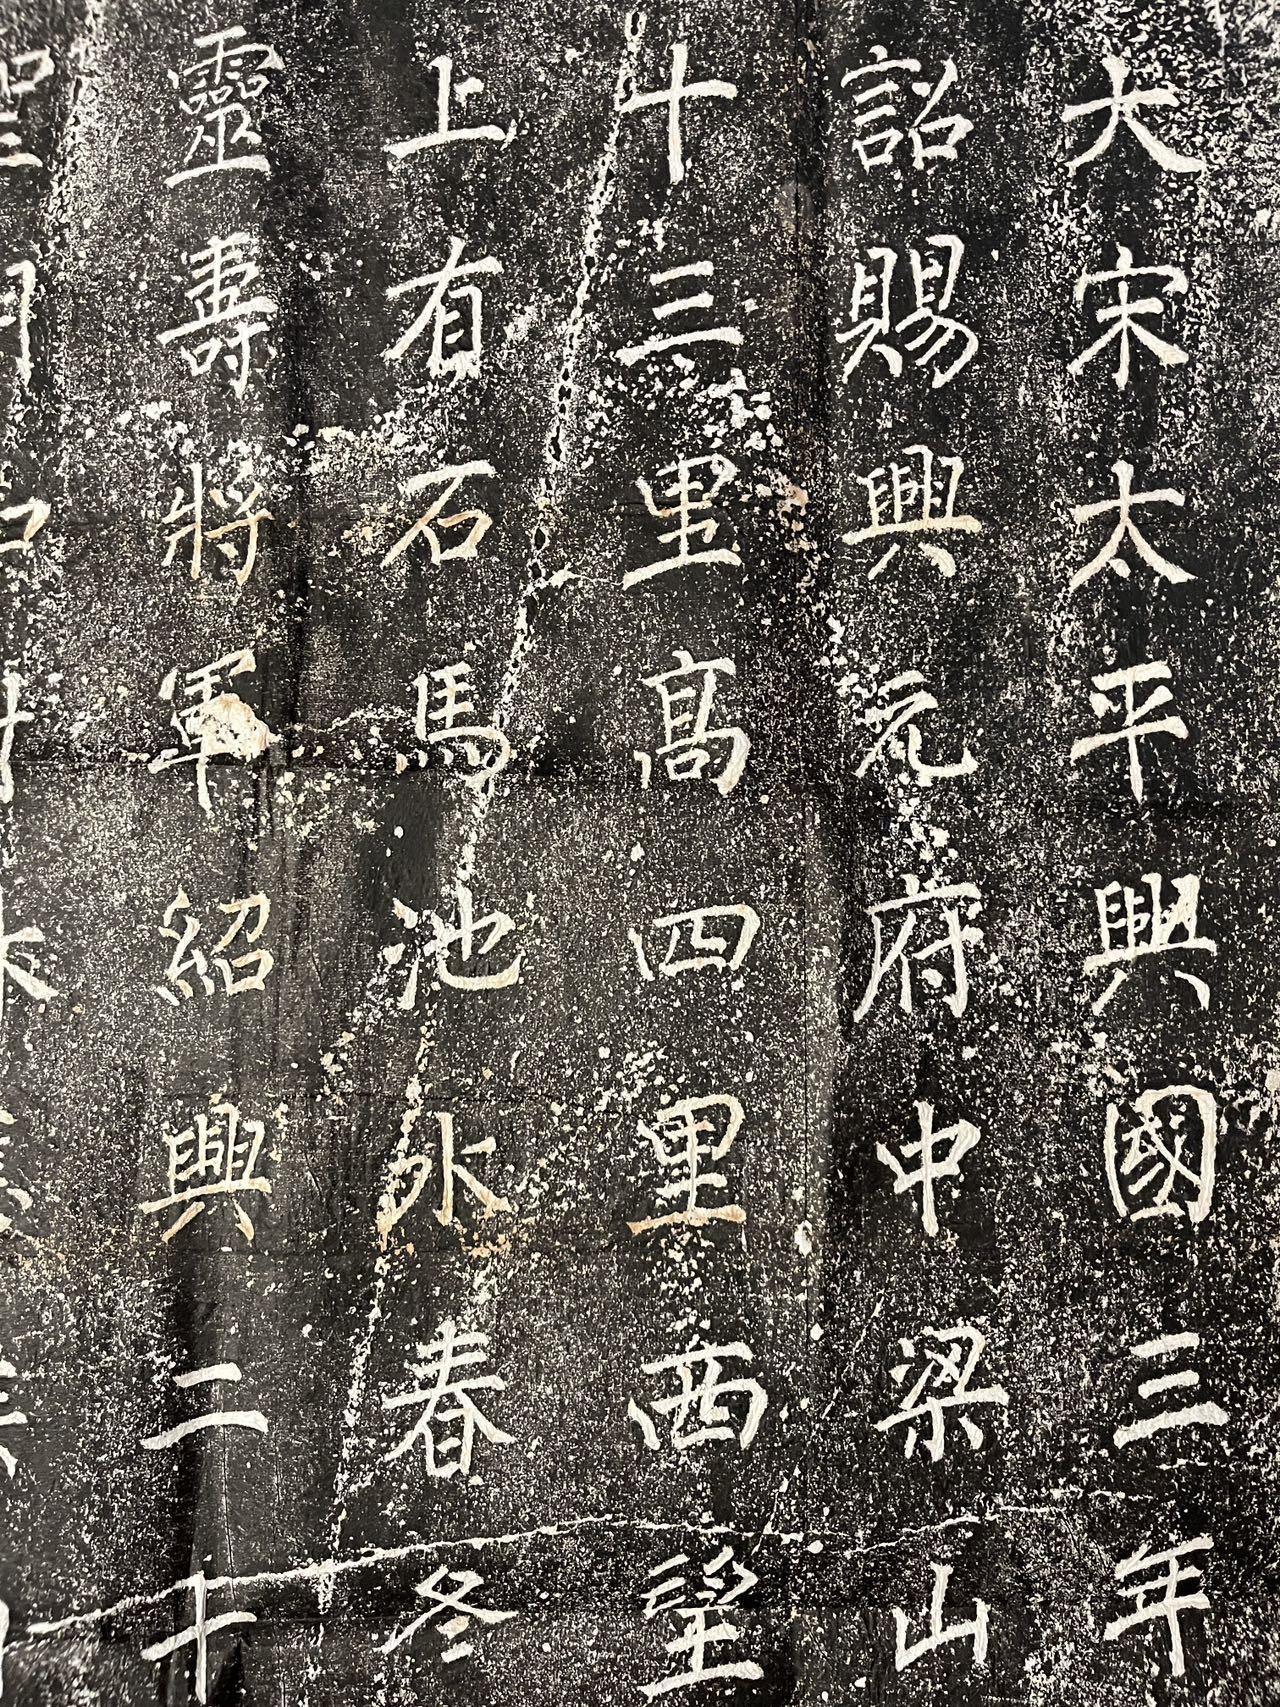 大宋太平興國三年
詔賜興元府中梁山
十三里高四里西望
上有石馬池水春冬
靈壽將軍紹興二十